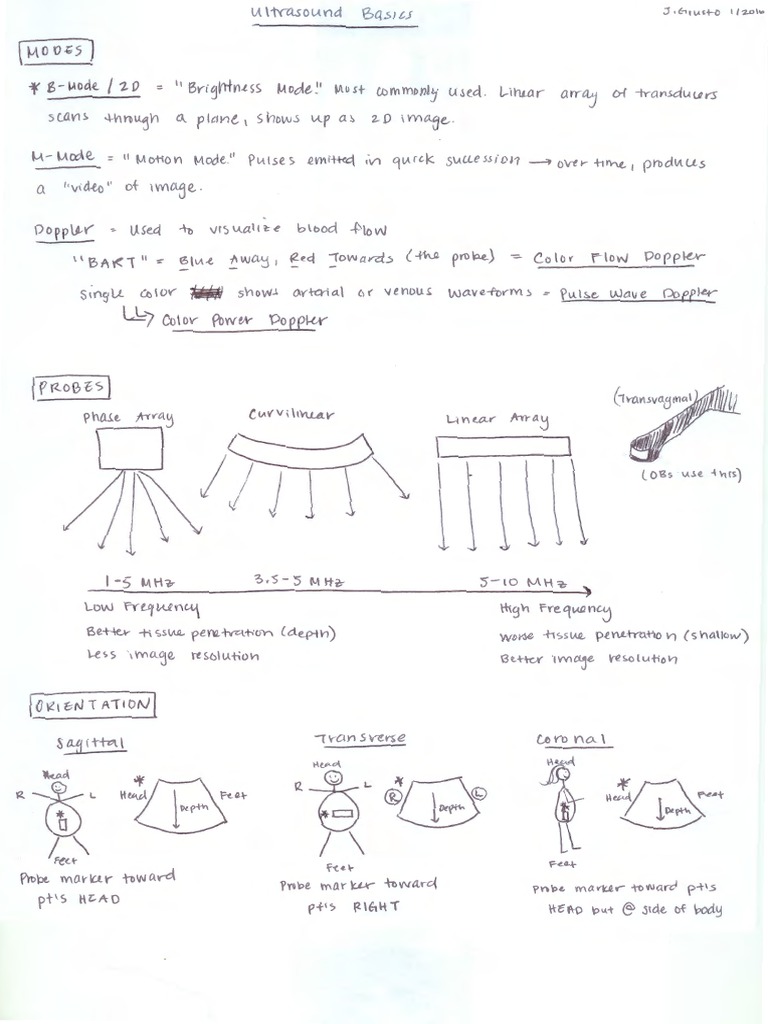 Ultrasound Basics
J. Giusto 1/2016
MODES
* B-Mode / 2D = "Brightness Mode." Most commonly used. Linear array of transducers
scans through a plane, shows up as 2D image.
M-Mode = "Motion Mode." Pulses emitted in quick succession → over time, produces
a "video" of image.
Doppler = Used to visualize blood flow
"BART" = Blue Away, Red Towards (the probe) = Color Flow Doppler
Single color shows arterial or venous waveforms = Pulse Wave Doppler
↳ Color Power Doppler
PROBES
Phase Array
Curvilinear
Linear Array
(Transvaginal)
(OBs use this)
1-5 MHz 3.5-5 MHz 5-10 MHz
Low Frequency
Better tissue penetration (depth)
Less image resolution
High Frequency
Worse tissue penetration (shallow)
Better image resolution
ORIENTATION
Sagittal
Head
R L
*
Feet
*
Head Feet
Depth
Probe marker toward
pt's HEAD
Transverse
Head
R L
*
Feet
*
R L
Depth
Probe marker toward
pt's RIGHT
Coronal
Head
*
Feet
*
Head Feet
Depth
Probe marker toward pt's
HEAD but @ side of body